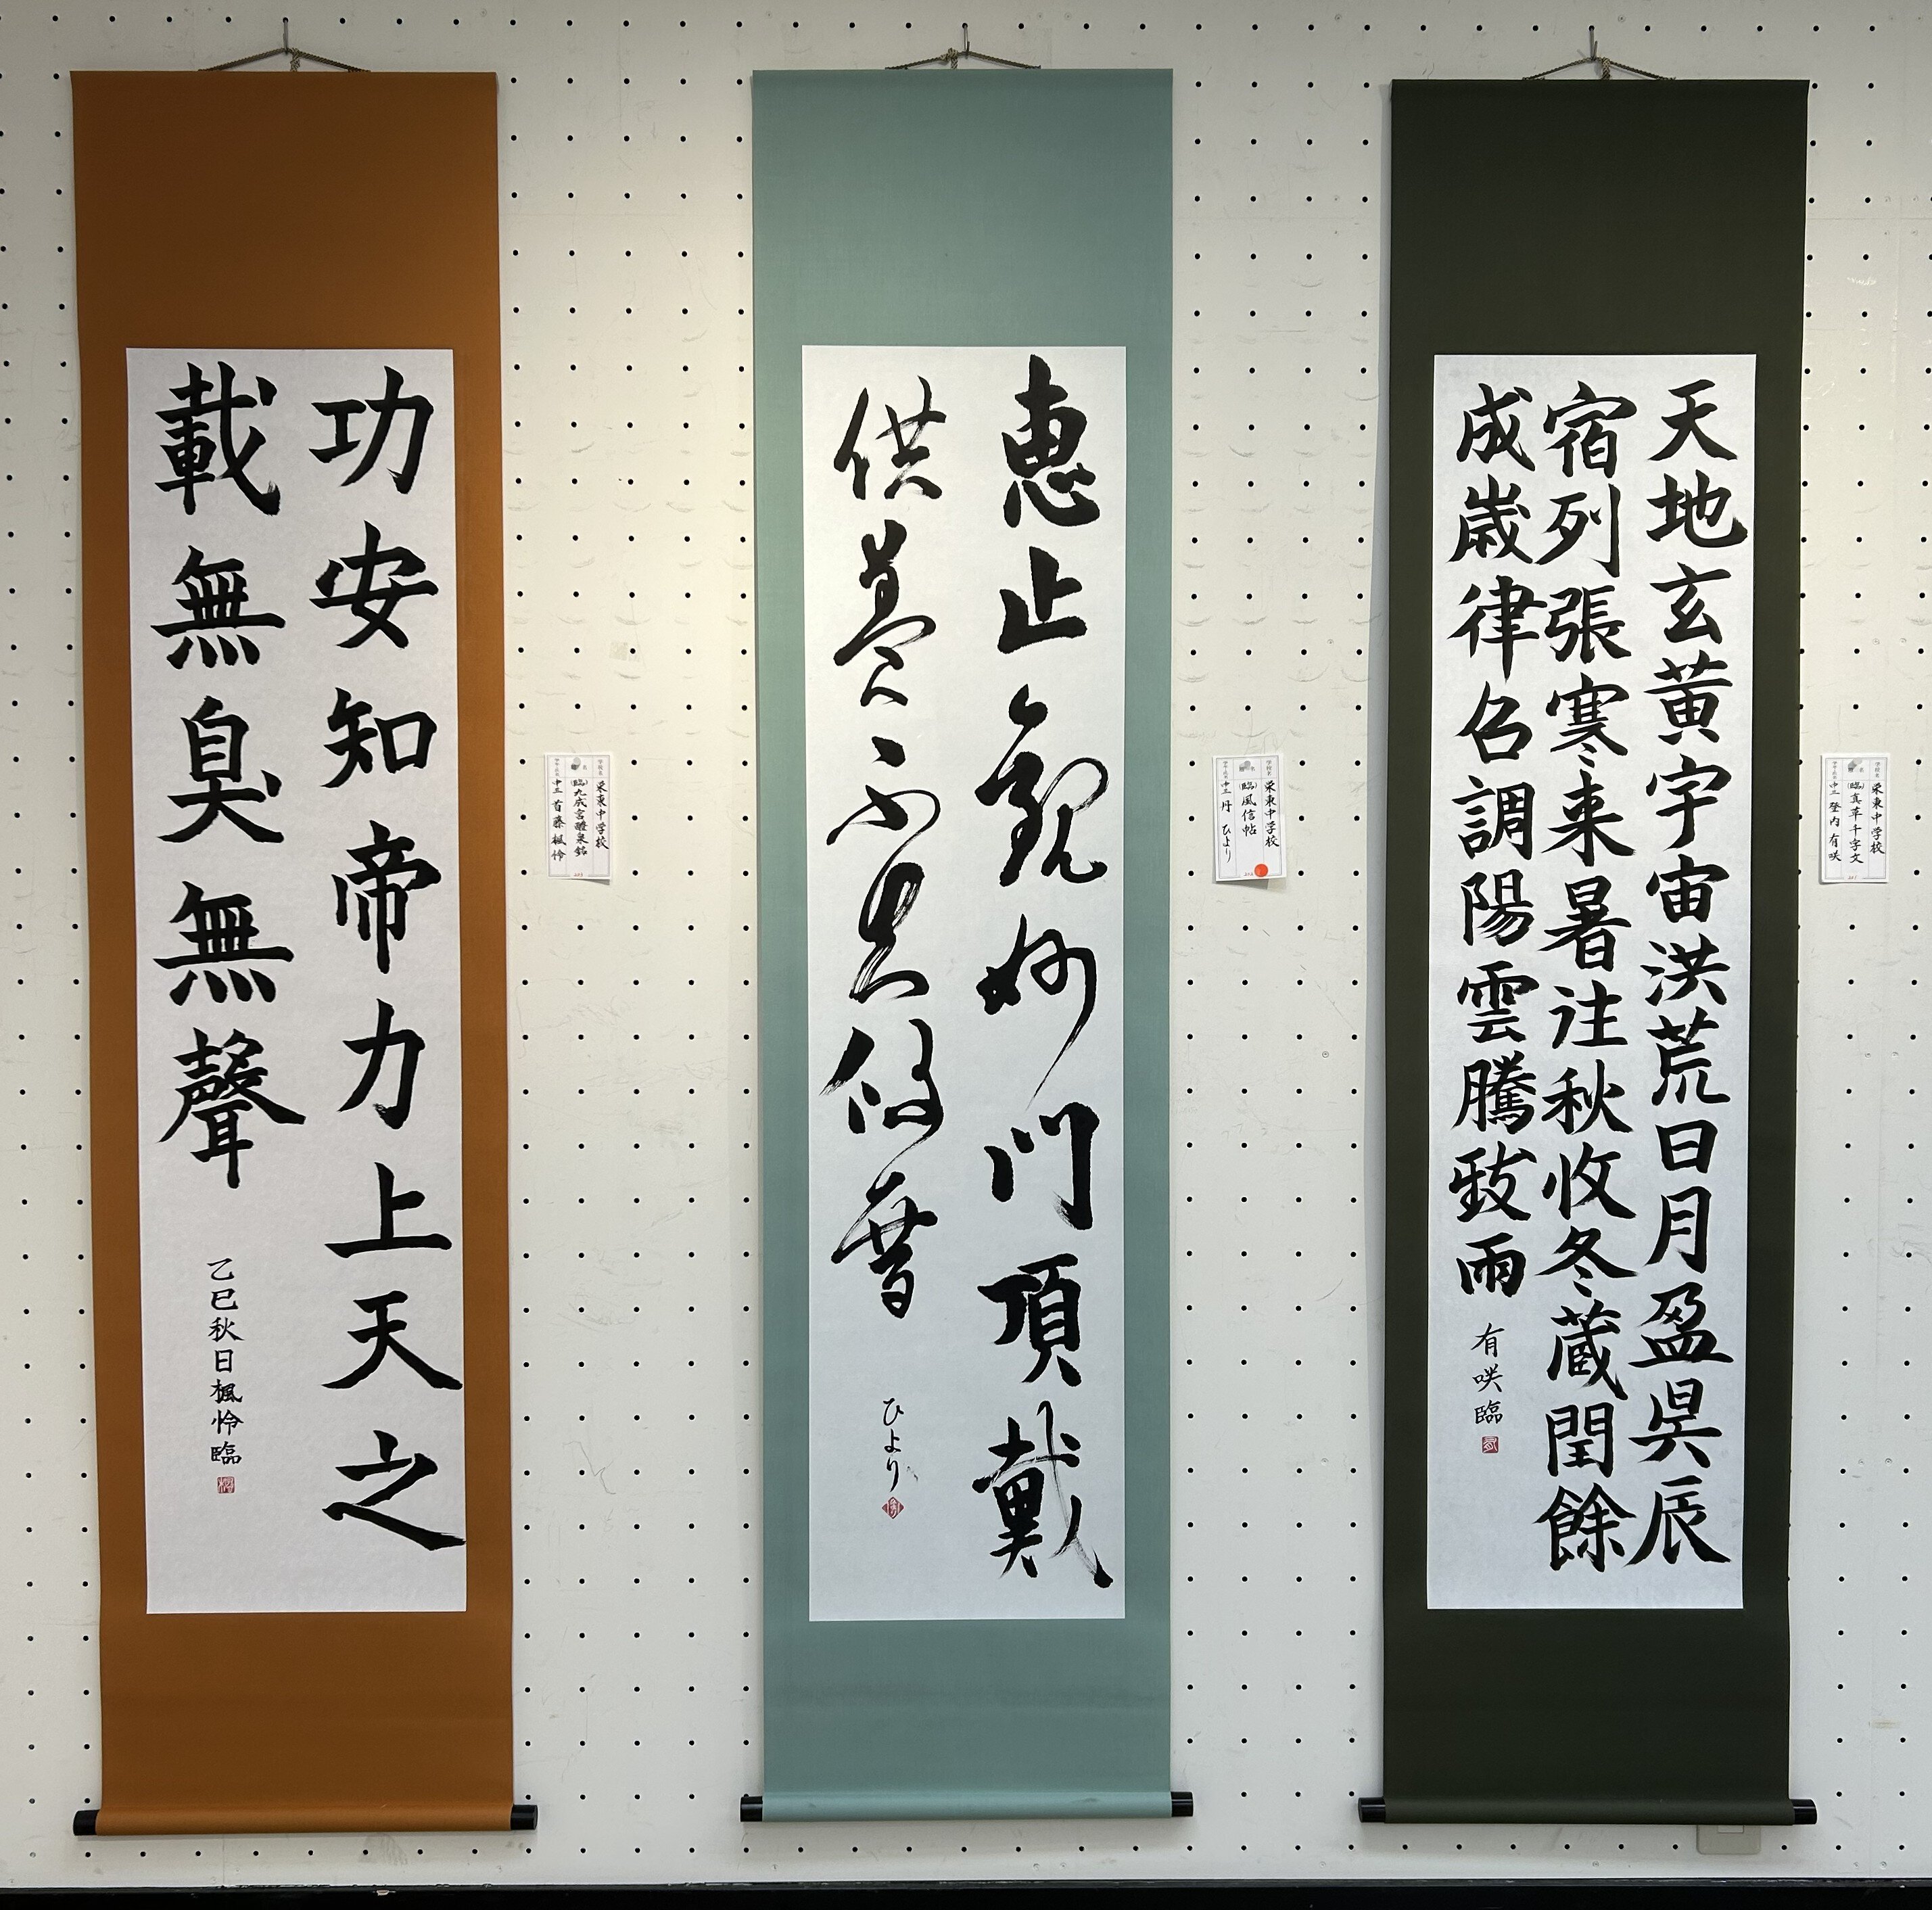 栄東中学校
(臨)真草千字文
中三 登内 有咲
天地玄黄宇宙洪荒日月盈昃辰
宿列張寒来暑往秋收冬蔵閏餘
成歳律召調陽雲騰致雨
有咲臨
栄東中学校
(臨)風信帖
中三 丹 ひより
恵止觀妙門頂戴
供養不知攸厝
ひより
栄東中学校
(臨)九成宮醴泉銘
中三 首藤 楓怜
功安知帝力上天之
載無臭無聲
乙巳秋日楓怜臨